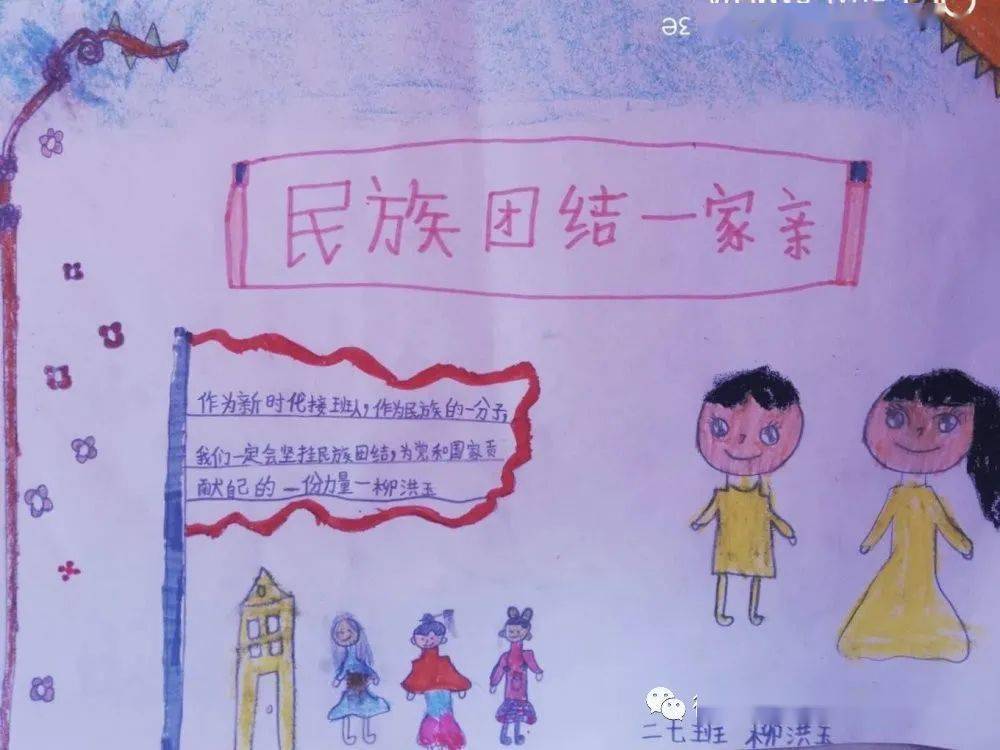 民族团结一家亲
作为新时代接班人,作为民族的一分子,
我们一定会坚持民族团结,为党和国家贡
献自己的一份力量一柳洪玉
二七班 柳洪玉